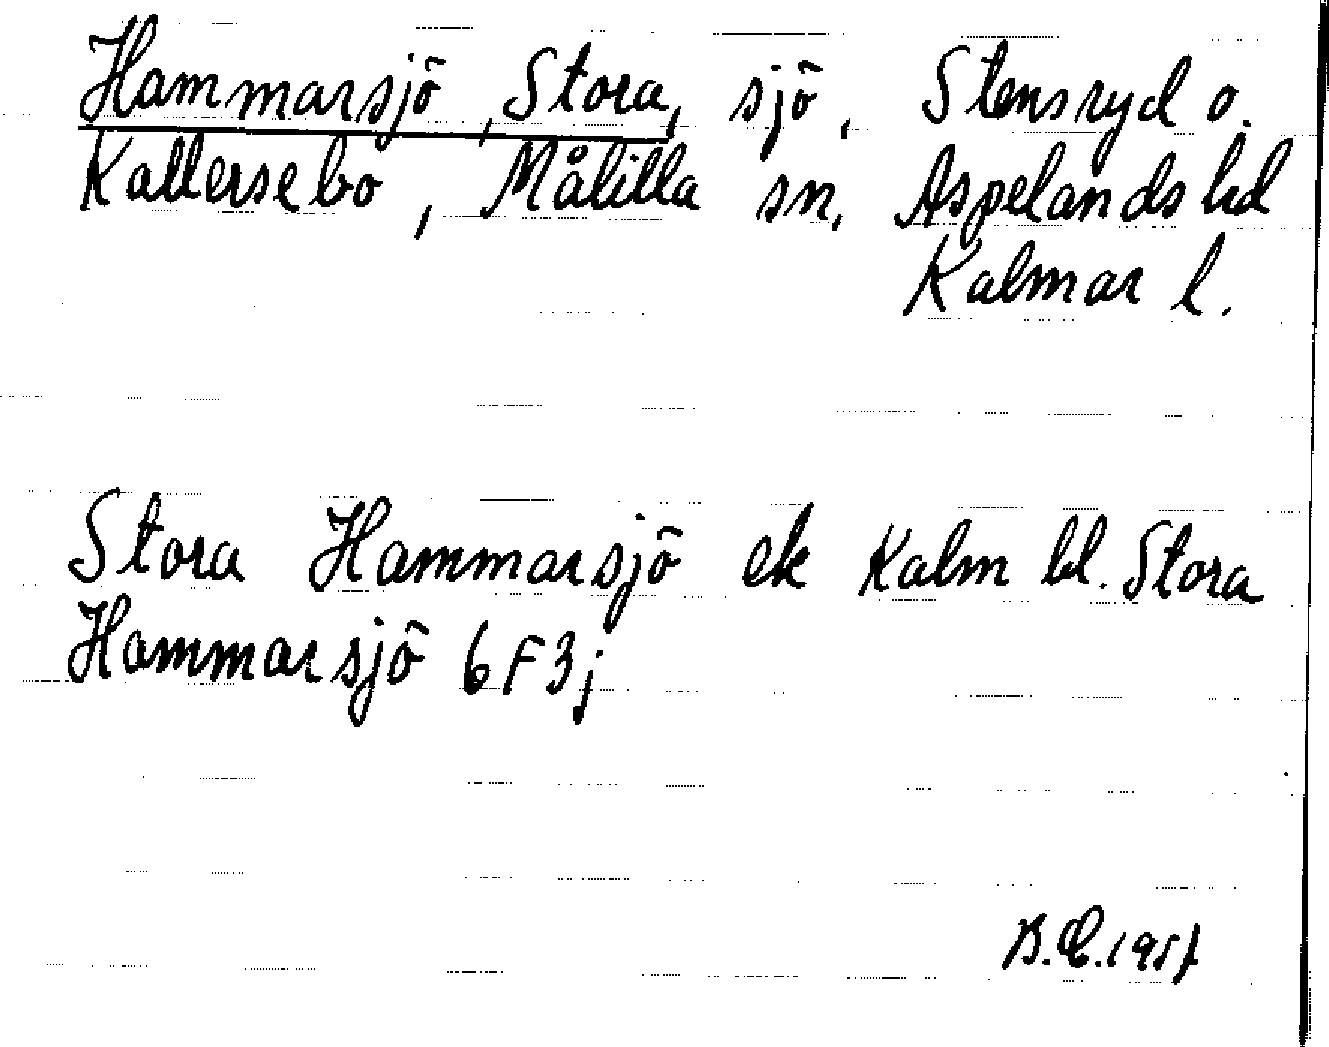 Hammarsjö, Stora, sjö, Stensryd o.
Kallersebo, Målilla sn, Aspelands hd
Kalmar l.
Stora Hammarsjö ek Kalm bl. Stora
Hammarsjö 6F3j
B.E. 1957